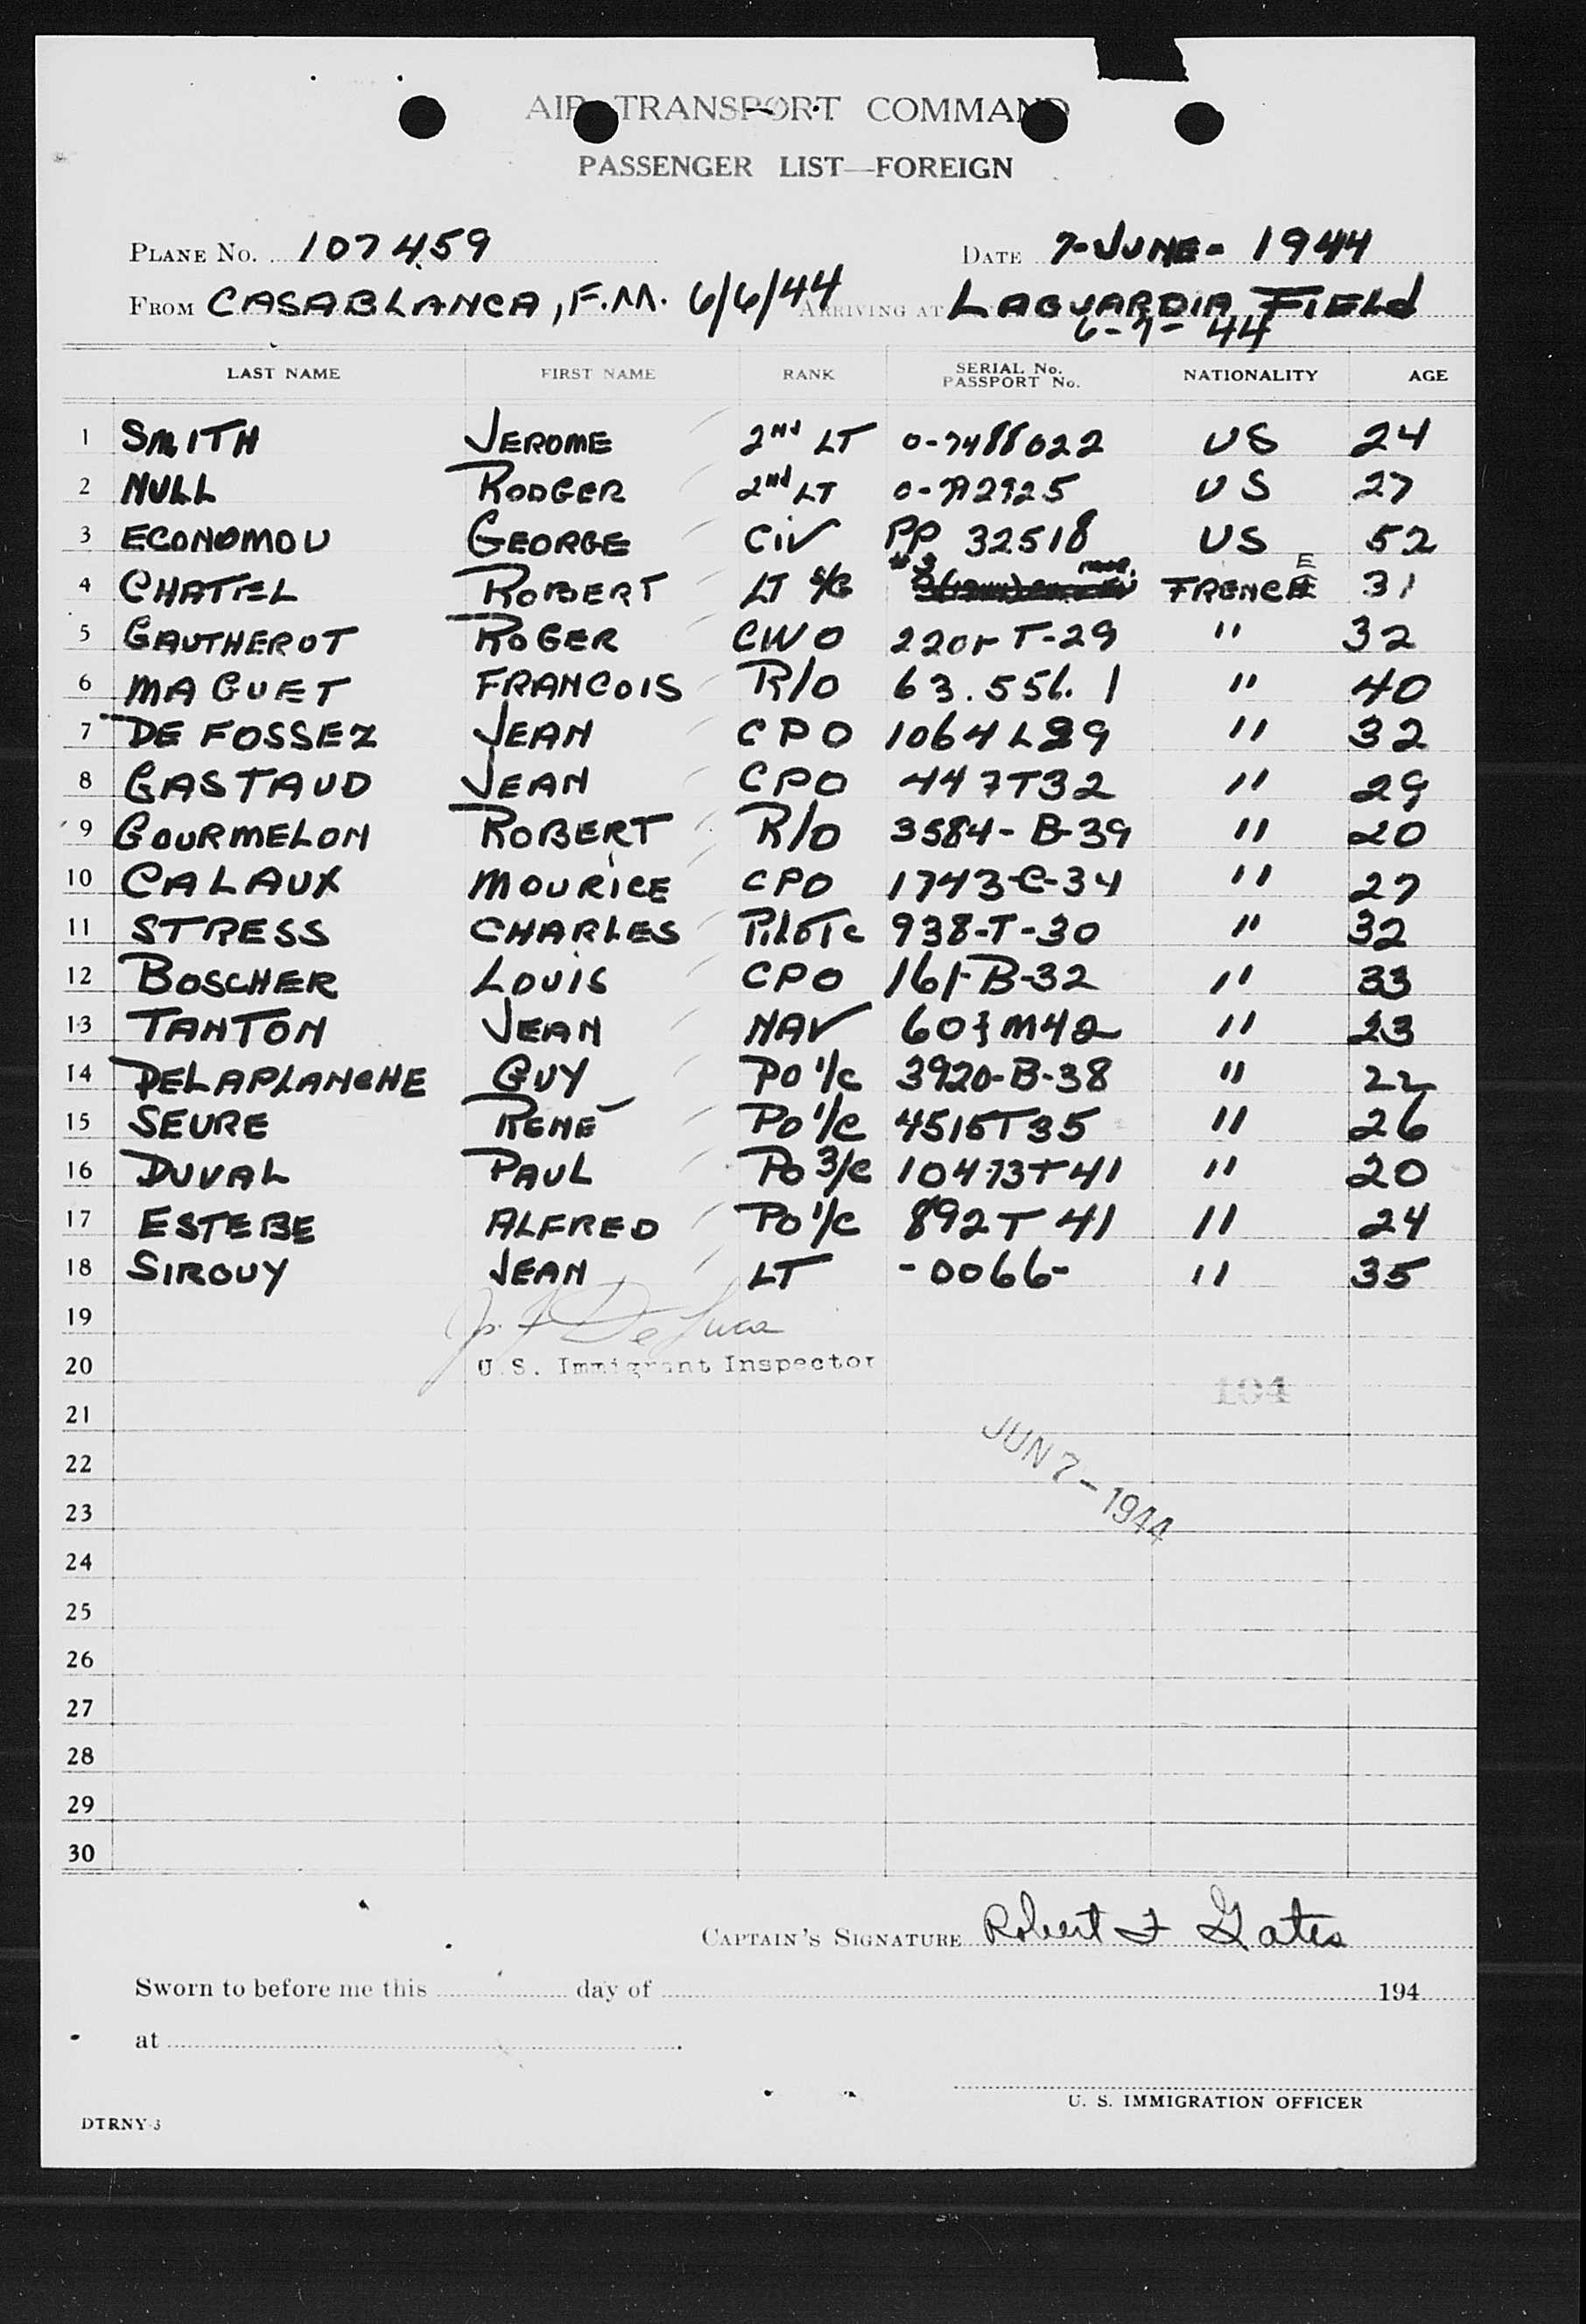 AIR TRANSPORT COMMAND
PASSENGER LIST—FOREIGN
PLANE No. 107459 DATE 7-JUNE-1944
FROM CASABLANCA, F.M. 6/6/44 ARRIVING AT LAGUARDIA FIELD
6-7-44
LAST NAME FIRST NAME RANK SERIAL No. PASSPORT No. NATIONALITY AGE
1 SMITH JEROME 2ND LT US 24
2 NULL RODGER 2ND LT US 27
3 ECONOMOU GEORGE CIV PP 32518 US 52
4 CHATEL ROBERT LT S/G #3 FRENCH 31
5 GAUTHEROT ROGER CWO T-29 " 32
6 MAGUET FRANCOIS R/O " 40
7 DE FOSSEZ JEAN CPO " 32
8 GASTAUD JEAN CPO 447T32 " 29
9 GOURMELON ROBERT R/O 3584-B-39 " 20
10 CALAUX MOURICE CPO 1743-C-34 " 27
11 STRESS CHARLES 938-T-30 " 32
12 BOSCHER LOUIS CPO " 33
13 TANTON JEAN NAV " 23
14 DELAPLANCHE GUY PO 1/C 3920-B-38 " 22
15 SEURE RENÉ PO 1/C 4515T35 " 26
16 DUVAL PAUL PO 3/C 10473T41 " 20
17 ESTEBE ALFRED PO 1/C 892T 41 " 24
18 SIROUY JEAN LT -0066- " 35
19 De Luca
20 U.S. Immigrant Inspector
104
21
JUN 7-1944
22
23
24
25
26
27
28
29
30
CAPTAIN'S SIGNATURE Robert F Gates
Sworn to before me this day of 194
at
U. S. IMMIGRATION OFFICER
DTRNY-3